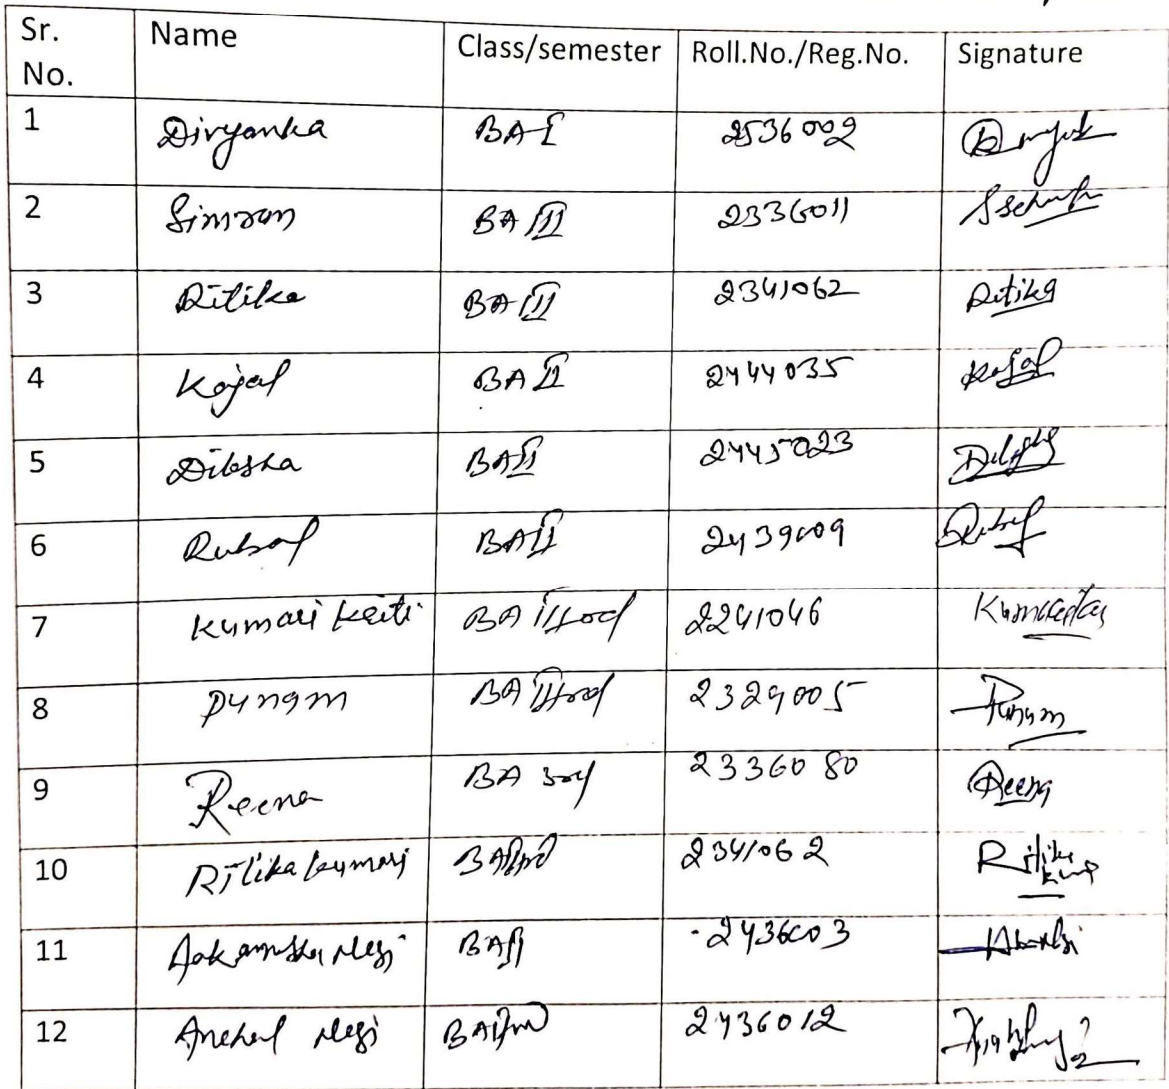 Sr. No. Name Class/semester Roll.No./Reg.No. Signature
1 Divyanka BA I 2536002
2 Simran BA III 2336011
3 Ritika BA III 2341062 Ritika
4 Kajal BA II 2444035 Kajal
5 Diksha BA II 2445023
6 Rubal BA II 2439009 Rubal
7 Kumari Keiti BA IIIrd 2241046
8 Punam BA IIIrd 2329005 Punam
9 Reena BA 3rd 2336080 Reena
10 Ritika kumari 2341062 Ritika
11 Aakanksha Negi BA II 2436003
12 Anchal Negi 2436012